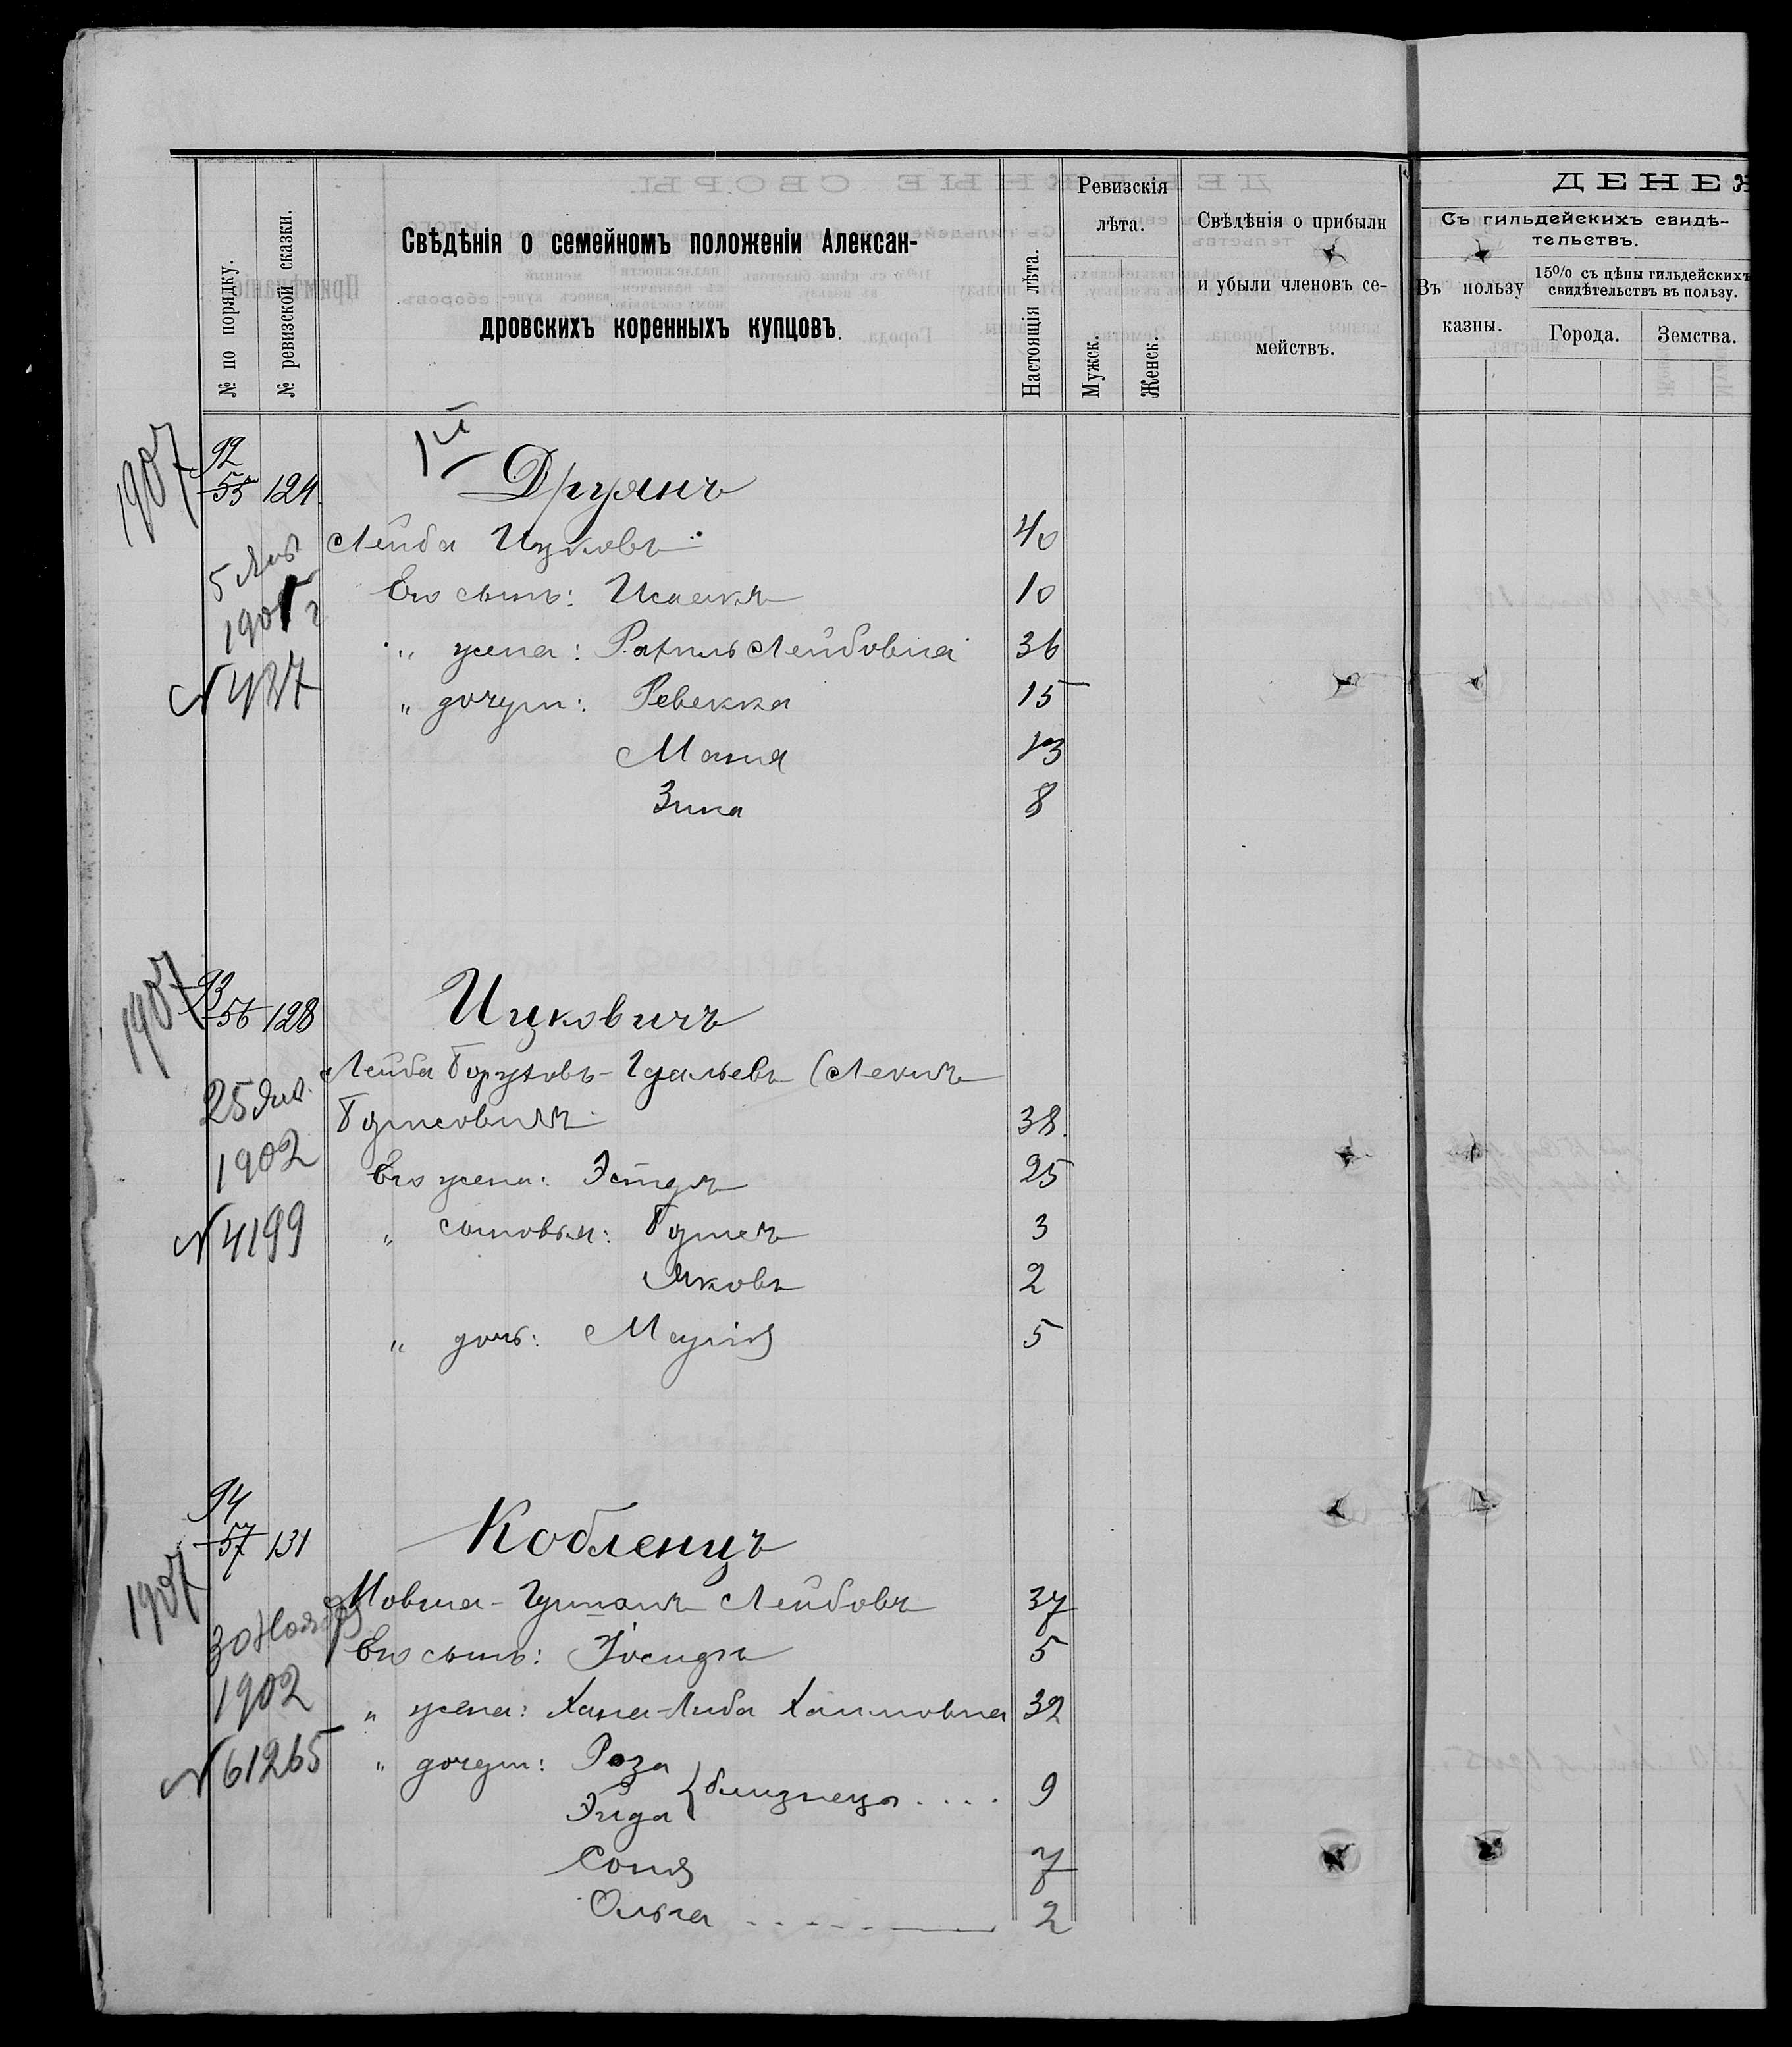 ДЕНЕЖ
№ по порядку.
№ ревизской сказки.
Свѣдѣнія о семейномъ положеніи Алексан-
дровскихъ коренныхъ купцовъ.
Настоящія лѣта.
Ревизскія
лѣта.
Мужск.
Женск.
Свѣдѣнія о прибыли
и убыли членовъ се-
мействъ.
Съ гильдейскихъ свидѣ-
тельствъ.
Въ пользу
казны.
15% съ цѣны гильдейскихъ
свидѣтельствъ въ пользу.
Города.
Земства.
1907
92
55 124.
Друянъ
Лейба Ицковъ 40
Его сынъ: Исаакъ 10
" жена: Рахиль Лейбовна 36
" дочери: Ревекка 15
Маня 13
Зина 8
5 Янв
N 427
1907
93
56 128
Ицковичъ
Лейба Боруховъ-Гдальевъ (
38.
Его жена: 25
" сыновья: 3
Яковъ 2
" дочь: 5
25 Янв.
1902
N 4199
94
57 131
1907
Кобленцъ
Мовша- Лейбовъ 37
Его сынъ: Іосифъ 5
" жена: Хана-Либа Хаимовна 32
" дочери: Роза
Эйда } близнецы .... 9
Соня 7
Ольга 2
30 Ноября
1902
N 61265